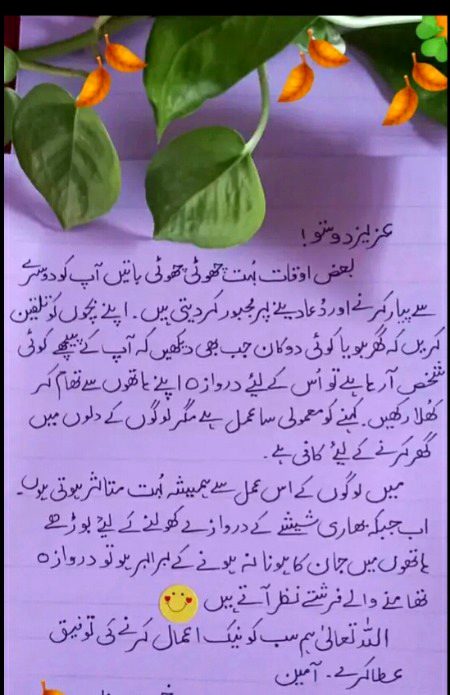 عزیز دوستو!
بعض اوقات بہت چھوٹی چھوٹی باتیں آپ کو دوسرے
سے پیار کرنے اور دُعا دینے پر مجبور کر دیتی ہیں۔ اپنے بچوں کو تلقین
کریں کہ گھر ہو یا کوئی دوکان جب بھی دیکھیں کہ آپ کے پیچھے کوئی
شخص آ رہا ہے تو اُس کے لیٔے دروازہ اپنے ہاتھوں سے تھام کر
کھُلا رکھیں۔ کہنے کو معمولی سا عمل ہے مگر لوگوں کے دلوں میں
گھر کرنے کے لیٔے کافی ہے۔
میں لوگوں کے اس عمل سے ہمیشہ بہت متاثر ہوتی ہوں۔
اب جبکہ بھاری شیشے کے دروازے کھولنے کے لیٔے بوڑھے
ہاتھوں میں جان کا ہونا نہ ہونے کے برابر ہو تو دروازہ
تھامنے والے فرشتے نظر آتے ہیں
اللّٰہ تعالیٰ ہم سب کو نیک اعمال کرنے کی توفیق
عطا کرے۔ آمین